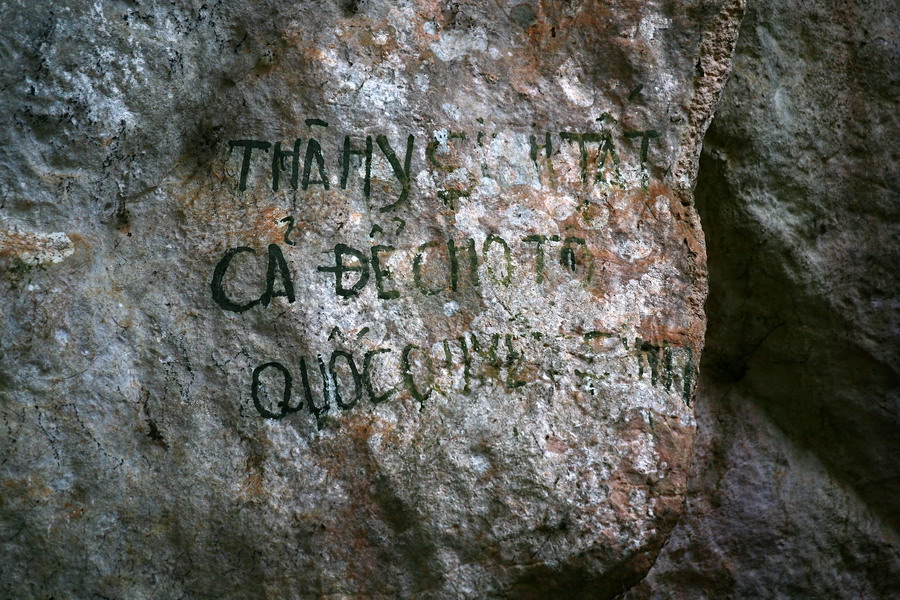 THÀ HY SINH TẤT
CẢ ĐỂ CHO TỔ
QUỐC